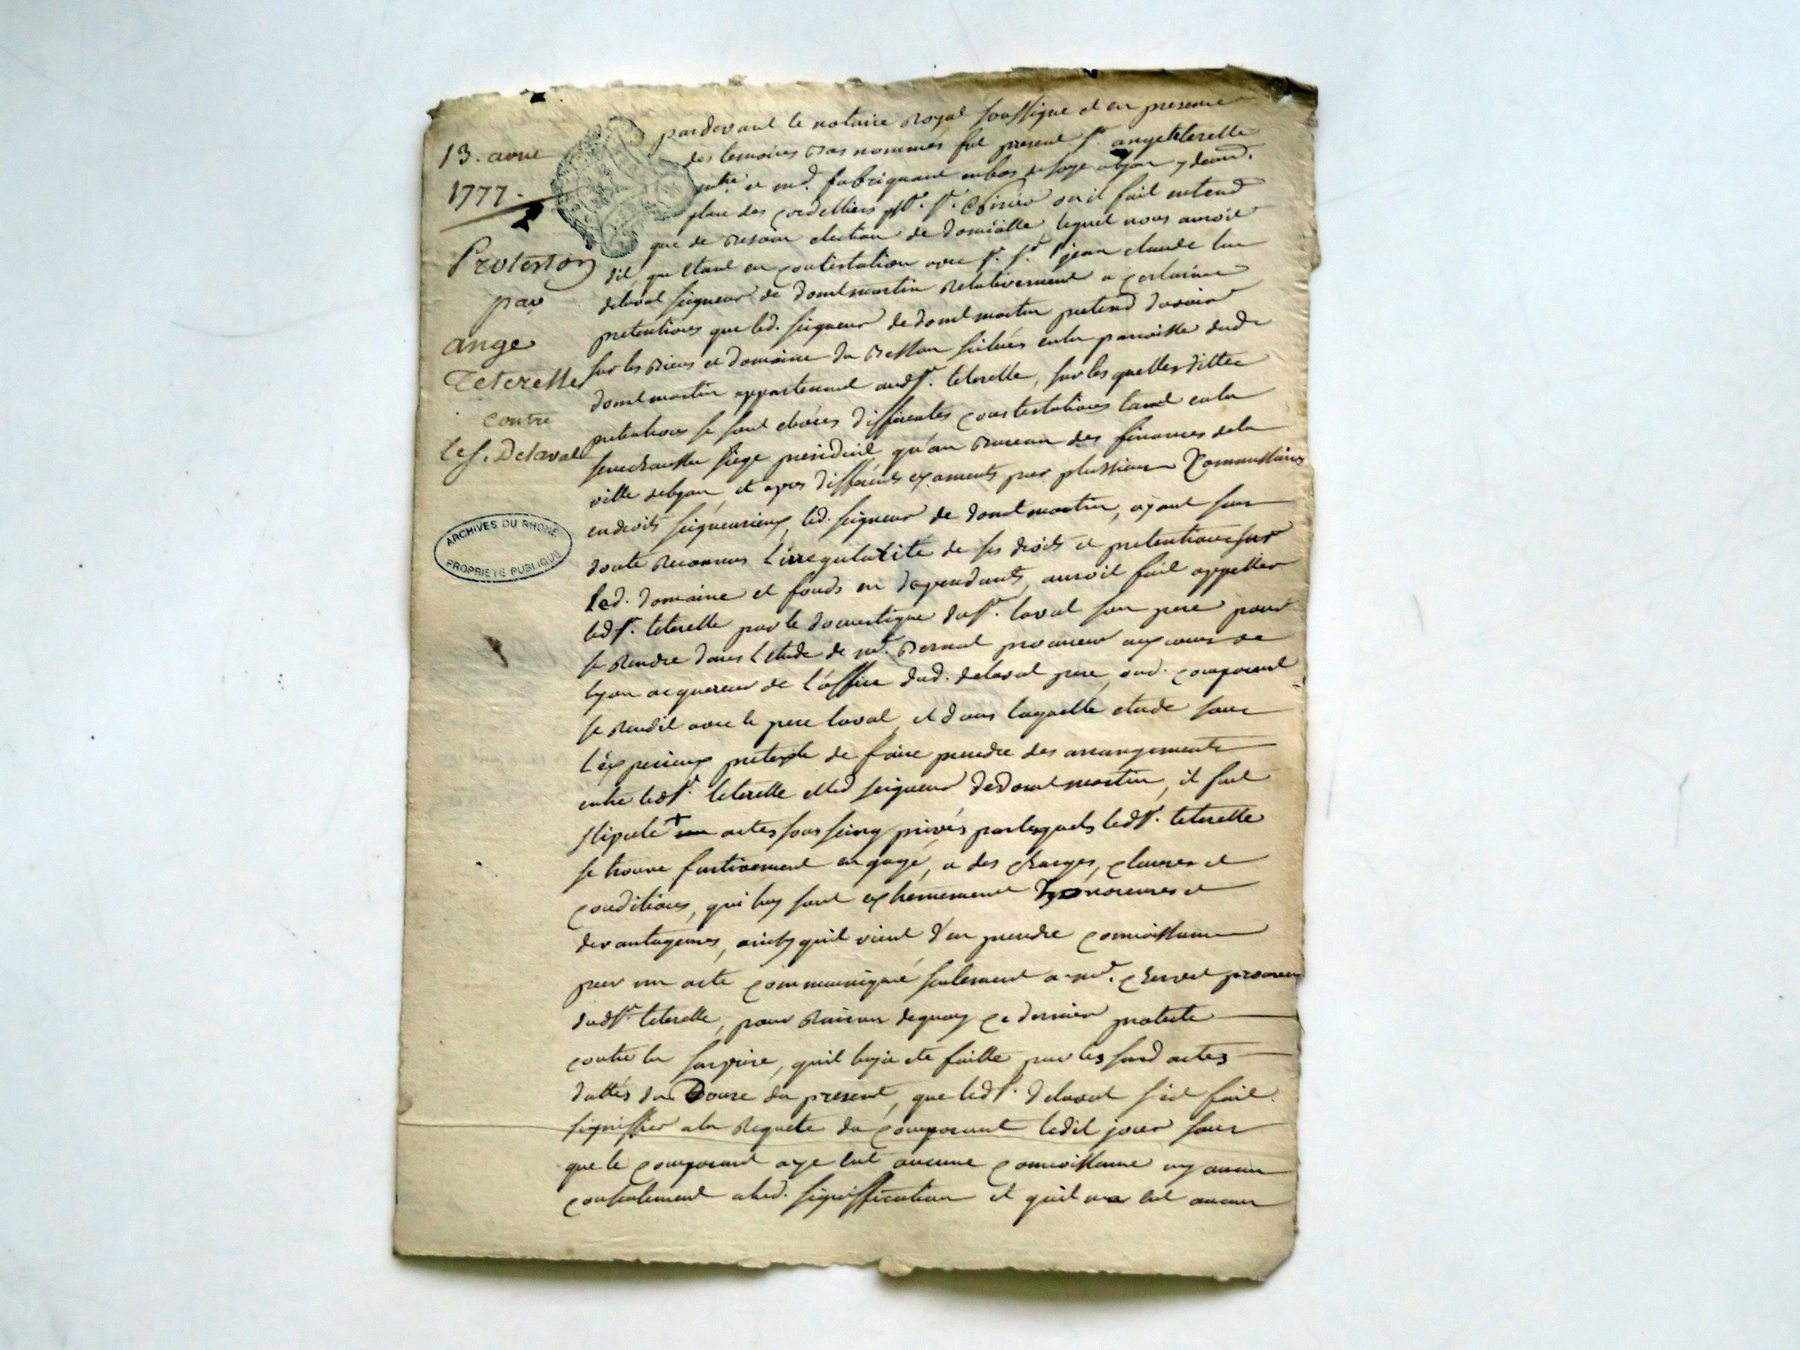 13. avril
1777.
Protestõn
par
ange
Teterelle
contre
le s. Delaval
ARCHIVES DU RHONE
PROPRIETE PUBLIQUE
pardevant le notaire Royal soussigné et en presence
des temoins bas nommés fut present sr. ange teterelle
et md. fabriquant en bas de soye a lyon y demt.
place des cordelliers psse. st. Nizier ou il fait entend
que de besoin election de domicille lequel nous auroit
dit qu'etant en contestation avec jean claude luc
delaval seigneur de dommartin Relativement a certaines
pretentions que led. seigneur de dommartin pretend d'avoir
sur les Biens et domaine du Besson situés en la paroisse dud.
dommartin appartenant aud sr. teterelle, sur les quelles dittes
pretentions se sont elevées differentes contestations tant en la
senechaussée siege presidial, qu'au Bureau des finances de la
ville de lyon, et apres differents examents par plussieurs Commissaires
en droits seigneuriaux, led. seigneur de dommartin, ayant sans
doute Reconnus l'irregularité de ses droits et pretentions sur
led. domaine et fonds en dependants, auroit fait appeller
led sr. teterelle par le domestique du sr. laval son pere pour
se Rendre dans l'etude de me. Bernat procureur aux cours de
lyon acquereur de l'office dud. delaval pere, oud. comparant
se Rendit avec le pere laval, et dans laquelle etude sous
l'expecieux pretexte de faire prendre des arrangements
entre led sr. teterelle et led seigneur de dommartin, il fut
stipulé + actes sous seing privés par lesquels led sr. teterelle
se trouve furtivement engagé, a des charges, clauses et
conditions, qui luy sont extremement honoreuses et
desvantageuses, ainsy qu'il vient d'en prendre connoissance
par un acte communiqué seulement a me. chervet procureur
dud sr. teterelle, pour Raison de quoy ce dernier proteste
contre la surprise, qu'il luy a eté faitte par les susd actes
dattés du Douze du present, que led sr. delaval s'est fait
signiffier a la Requete du comparant ledit jour sans
que le comparant aye eut aucune connoissance ny aucun
consentement a lad. signiffication et qu'il n'a eut aucun